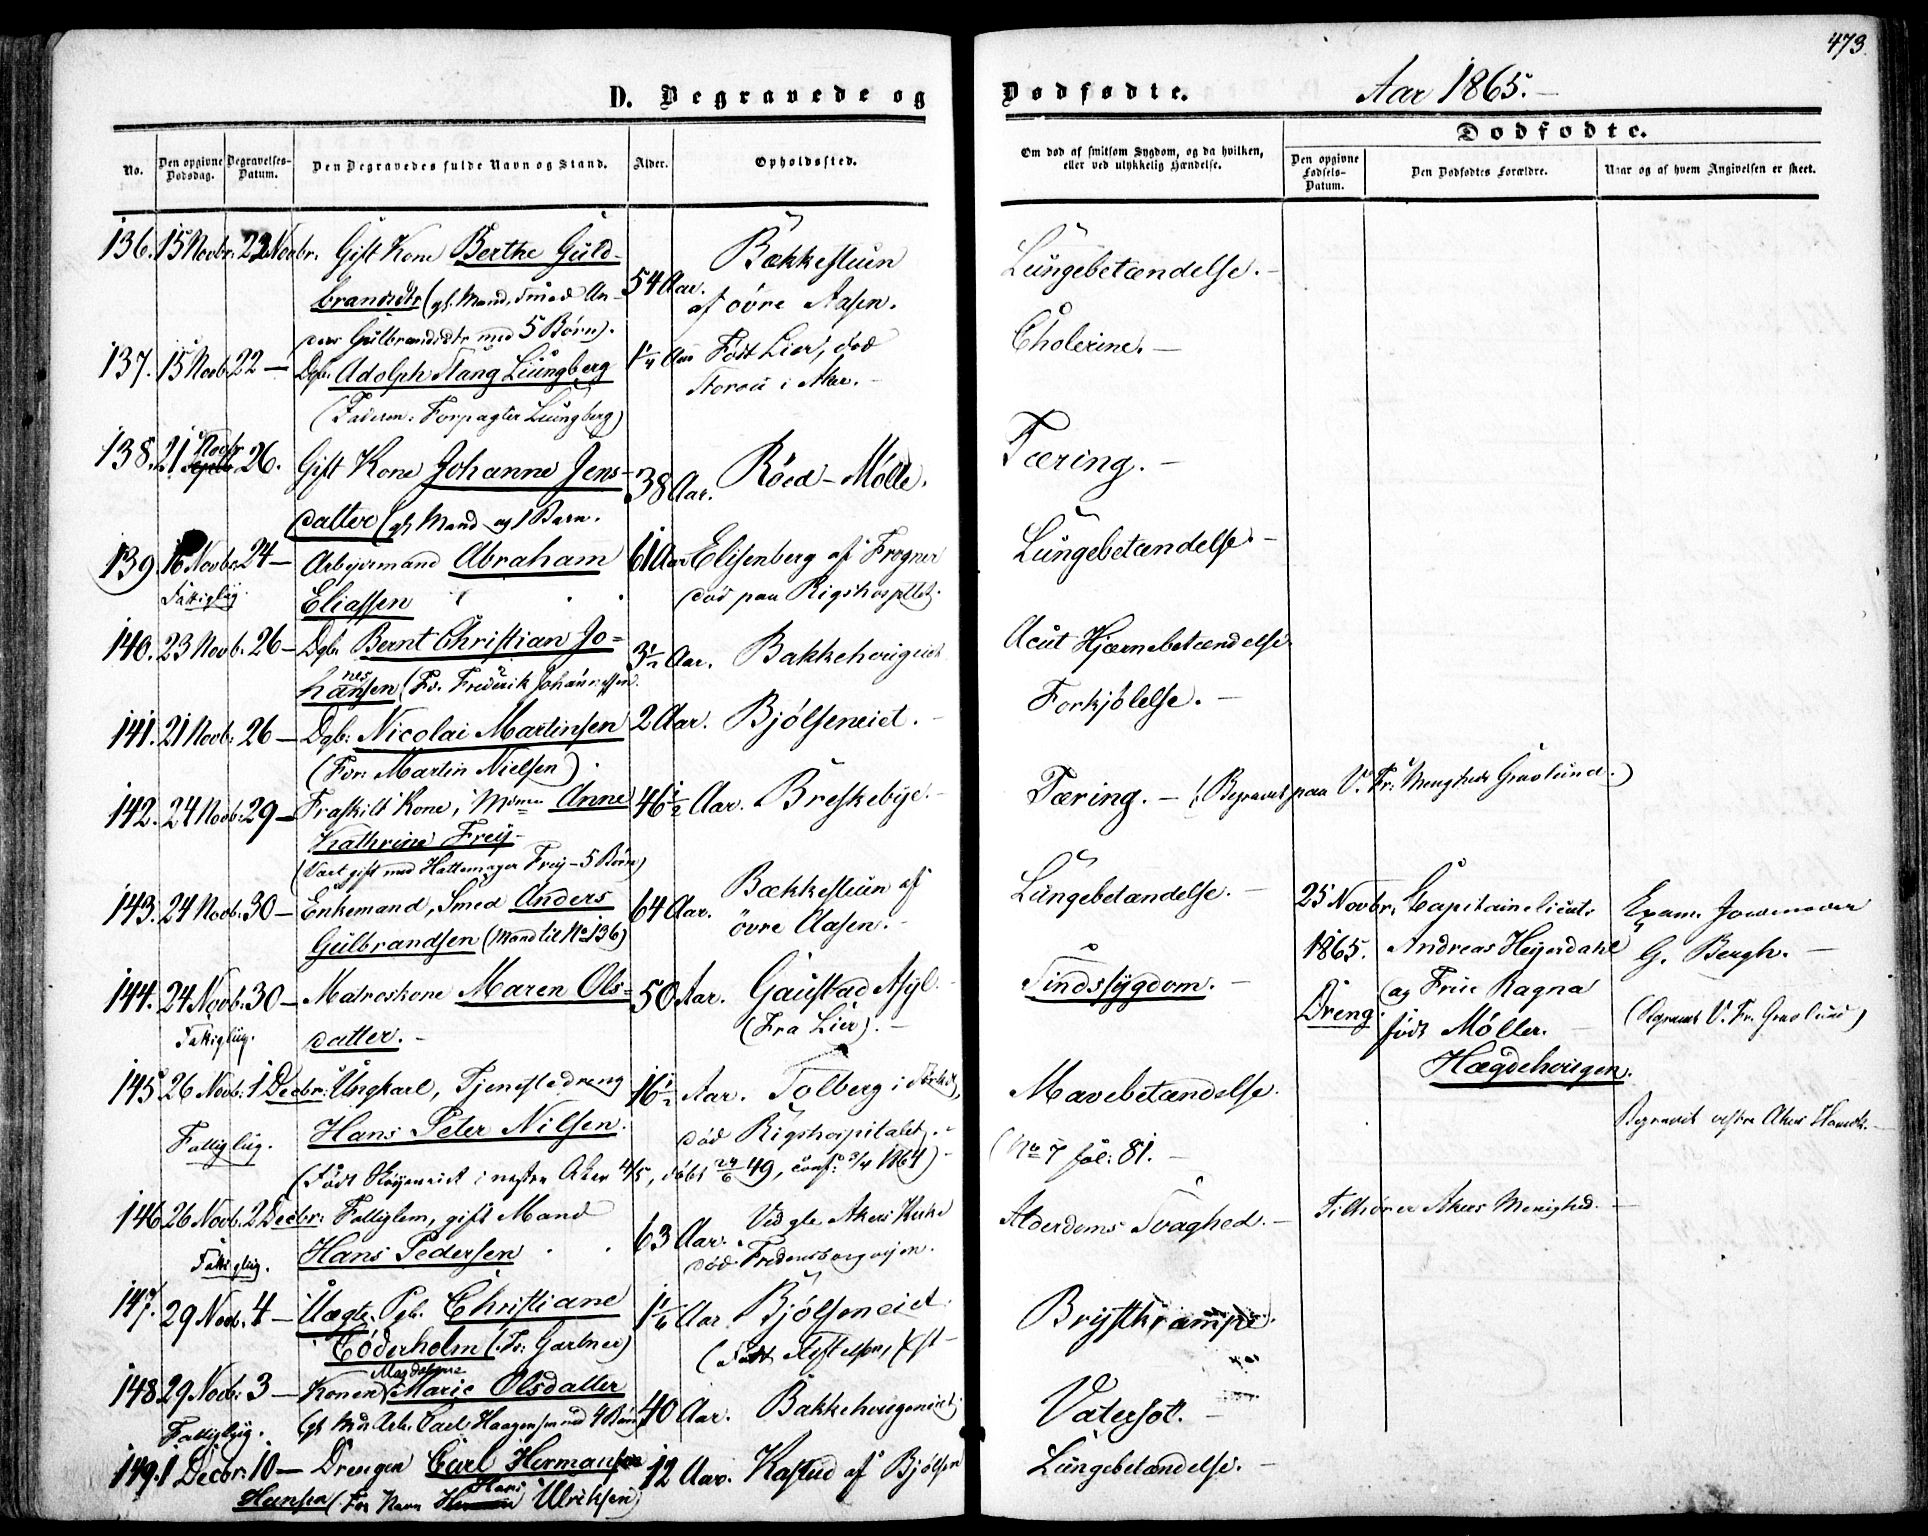 473.
D. Begravede og
Dødfødte.
Aar 1865.
Dødfødte.
No.
Den opgivne Dødsdag.
Begravelses-Datum.
Den Begravedes fulde Navn og Stand.
Alder.
Opholdssted.
Om død af smitsom Sygdom, og da hvilken, eller ved ulykkelig Hændelse.
Den opgivne Fødsels-Datum.
Den Dødfødtes Forældre.
Naar og af hvem Angivelsen er skeet.
136. 15 Novbr. 22 Novbr. Gift Kone Berthe Guld-
brandsdtr (gl. Mand, Smed An-
ders Gulbrandsdtr med 5 Børn).
54 Aar. Bækkestuen
af øvre Aasen.
Lungebetændelse.
137. 15 Novb. 22 — Dgb. Adolph Stang Liungberg
(Faderen: Forpagter Liungberg)
1/4 Aar Født Lier, død
Storøu i Aker.
Cholerine.
138. 21 Novbr 26. Gift Kone Johanne Jens-
datter (gl. Mand og 1 Barn.
38 Aar. Röed-Mølle.
Tæring.
139. 16 Novbr. 24 — Arbejdermand Abraham
Eliassen
Fattiglig.
61 Aar Elisenberg af Frogner
død paa Rigshospitlet.
Lungebetændelse.
140. 23 Novb. 26 — Dgb. Bernt Christian Jo-
hannesen (Fr. Frederik Johannessen.
3 1/2 Aar. Bakkehougeiet
Acut Hjærnebetændelse.
141. 21 Novb. 26 — Dgb. Nicolai Martinsen
(For: Martin Nielsen).
2 Aar. Bjølseneiet.
Forkjølelse.
142. 24 Novb. 29 — Fraskilt Kone, Anne
Kathrine Frey
(Vært gift med Hattemager Frey — 5 Børn)
46 1/2 Aar. Breskebye.
Tæring. — (Begravet paa V. Fr: Menigheds Gravlund.)
143. 24 Novb. 30 — Enkemand, Smed Anders
Gulbrandsen (Mand til No 136)
64 Aar. Bækkestuen af
øvre Aasen.
Lungebetændelse.
25 Novbr. 1865. Dreng.
Capitainlieut.
Andreas Heyerdahl
og Frue Ragna
født Møller.
Hægdehougen.
Exam. Jordemoder
G. Bergh.
(Begravet V. Fr. Gravlund)
144. 24 Novb. 30 — Matroskone Maren Ols-
datter.
Fattiglig.
50 Aar. Gaustad Asyl.
(Fra Lier).
Sindssygdom.
145 26 Novb. 1 Decbr: Ungkarl, Tjenestedreng
Hans Peter Nilsen.
Fattiglig.
16 1/2 Aar. Tolberg i
død Rigshospitalet.
(Født i vestre Aker 4/5, døbt 24/6 49, conf: 1864)
Mavebetændelse.
(No 7 fol: 81.
Begravet vestre Aker
146 26 Novb. 2 Decbr: Fattiglem, gift Mand
Hans Pedersen
Fattiglig.
63 Aar. Ved gle Akers Kirke
død Fredensborgveien.
Alderdoms Svaghed.
Tilhører Akers Menighed.
147. 29 Novb. 4 — Uægte Pgb. Christiane
Cöderholm (Fr: Gartner)
1 1/6 Aar. Bjølseneiet.
(Født
Brystkrampe.
148 29 Novb. 3 — Konen Magdalene Marie Olsdatter
(gl. Md. Arb. Carl Haagensen med 4 Børn)
Fattiglig.
40 Aar. Bakkehougeneiet.
Vatersot.
149. 1 Decbr. 10 — Drengen Carl Hermansen
Hansen (For Navn Hans Ulriksen)
12 Aar. Kastud af Bjølsen
Lungebetændelse.